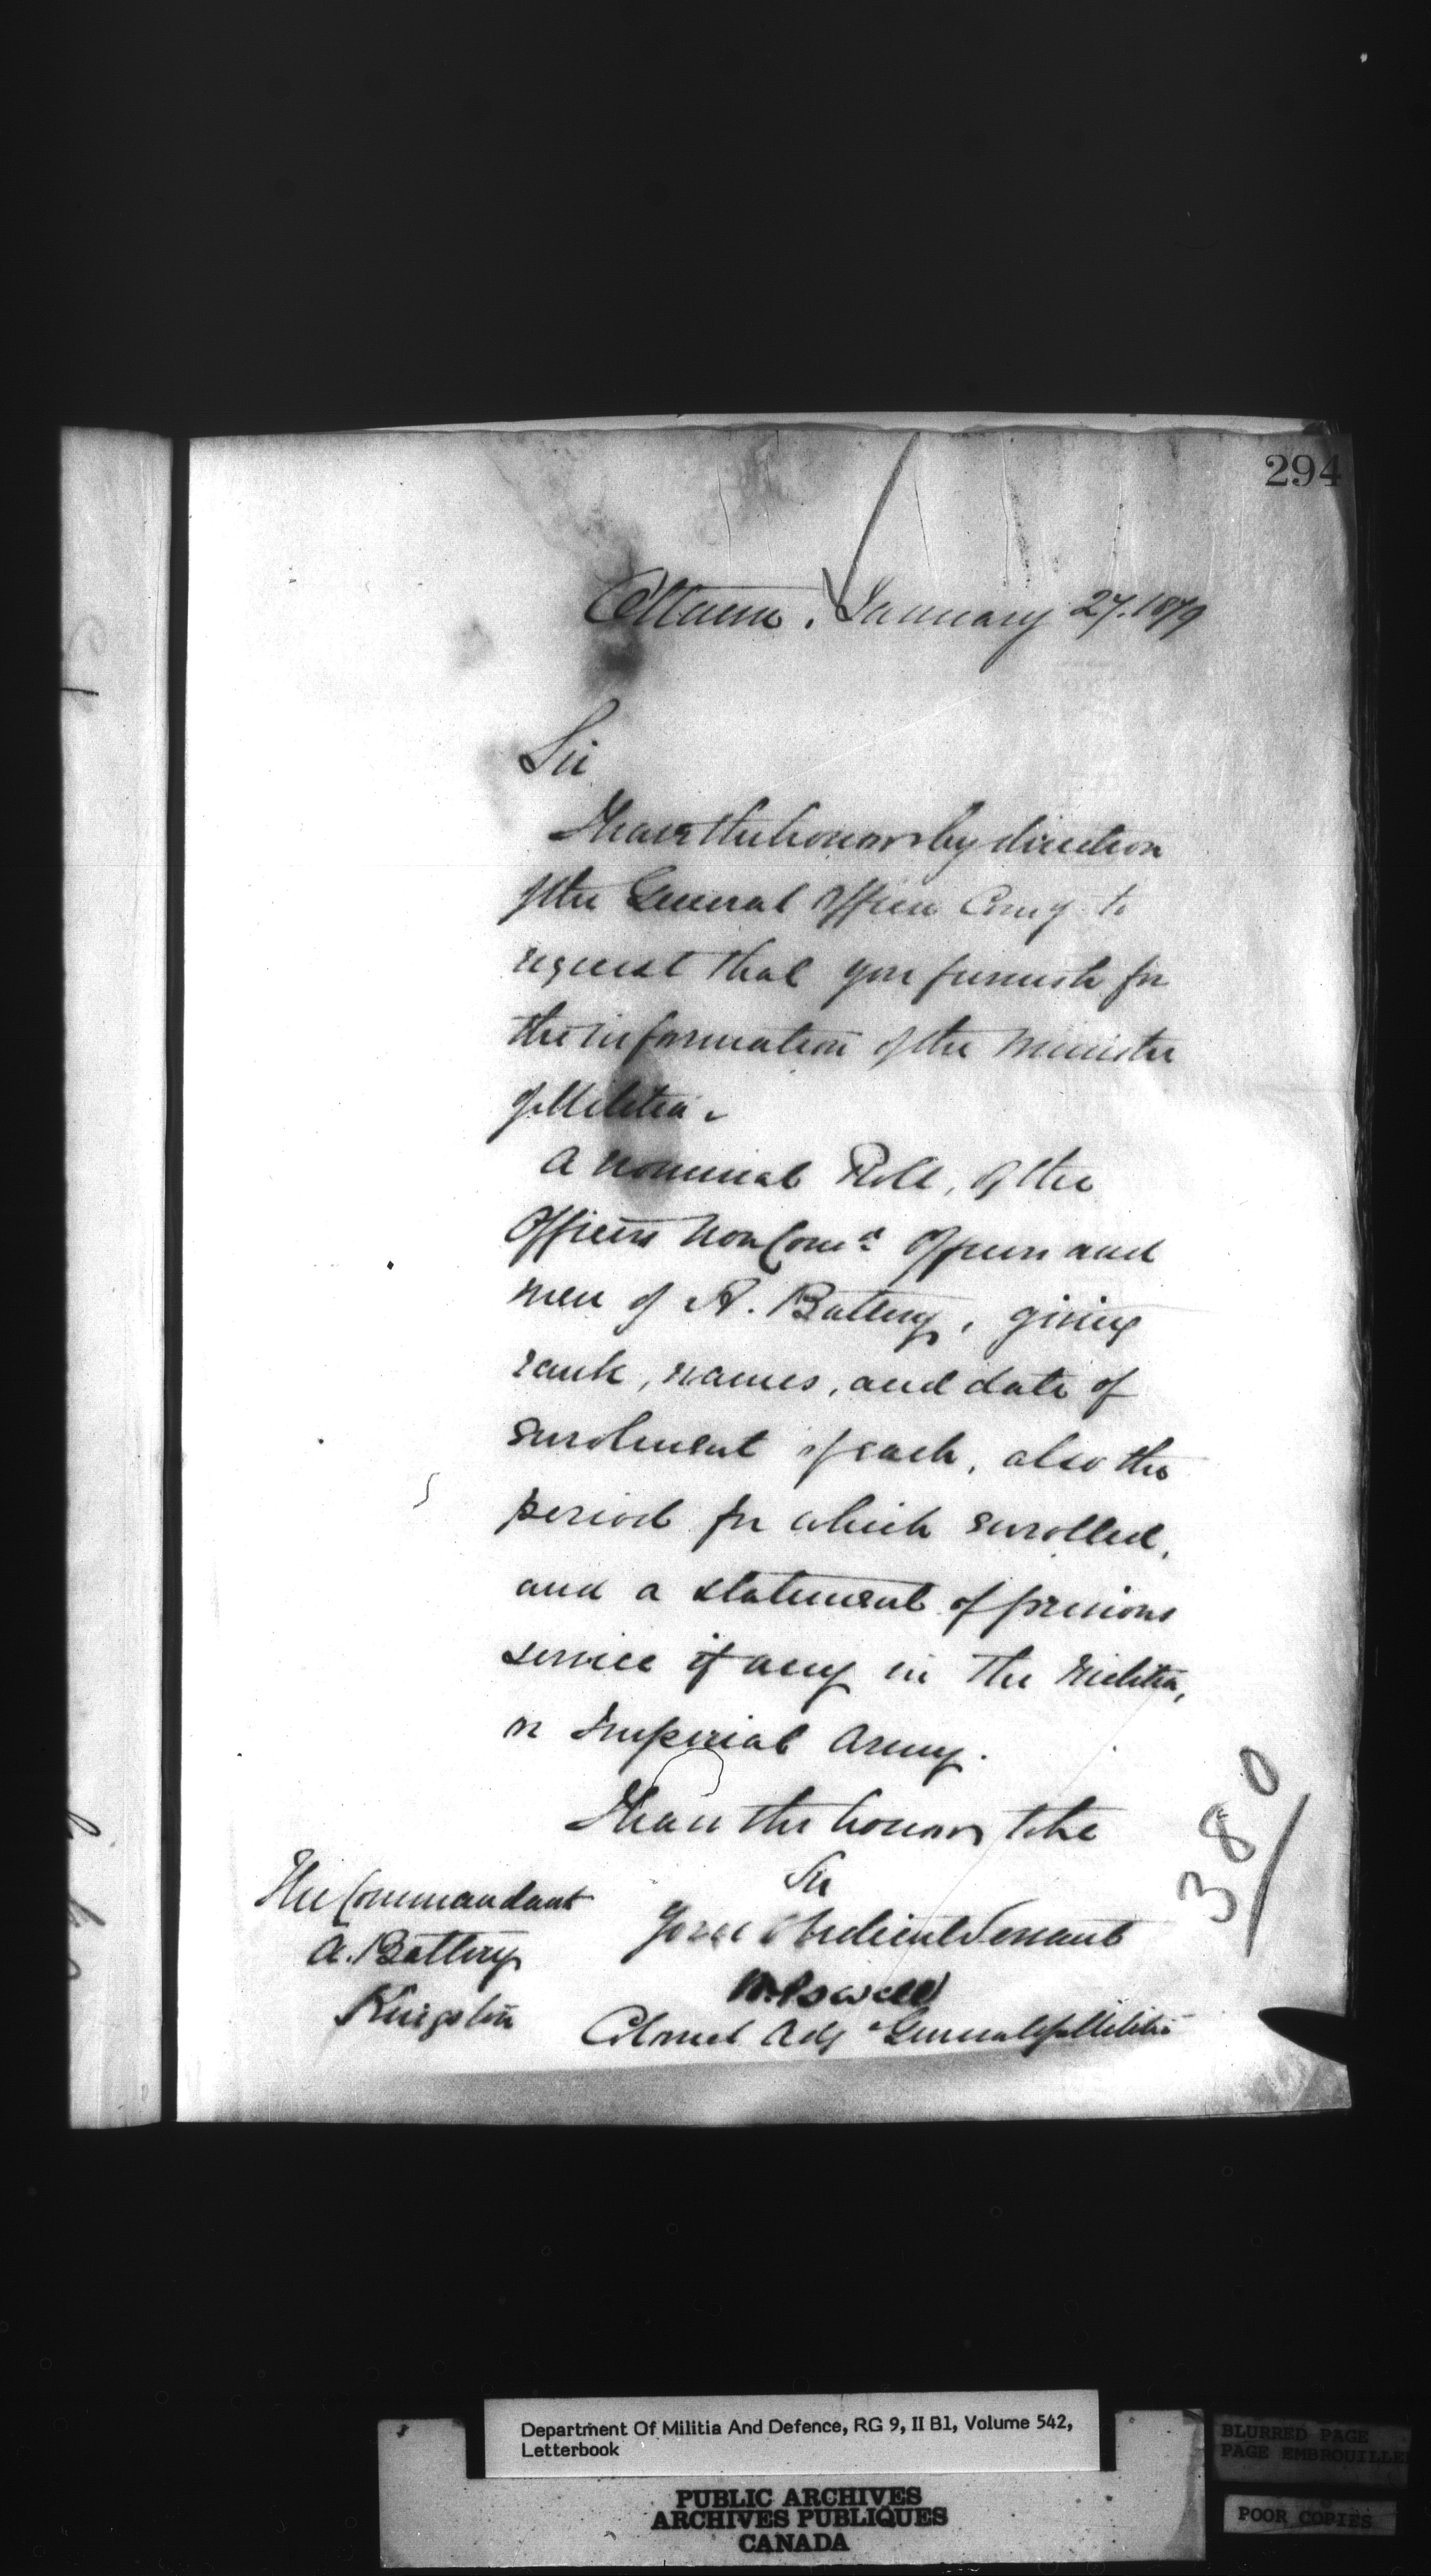 294
Ottawa. January 27. 1879
Sir
I have the honor by direction
of the General Officer Comg to
request that you furnish for
the information of the Minister
of Militia.
A nominal Roll, of the
Officers Non Comd Officers and
men of A. Battery, giving
rank, names, and date of
enrolment of each, also the
period for which enrolled,
and a statement of previous
service if any in the Militia,
or Imperial Army.
I have the honor to be
Sir
Your Obedient Servant
W. Powell
Colonel Adjt General of Militia
The Commandant
A. Battery
Kingston
380
Department Of Militia And Defence, RG 9, II B1, Volume 542,
Letterbook
PUBLIC ARCHIVES
ARCHIVES PUBLIQUES
CANADA
BLURRED PAGE
PAGE EMBROUILLE
POOR COPIES